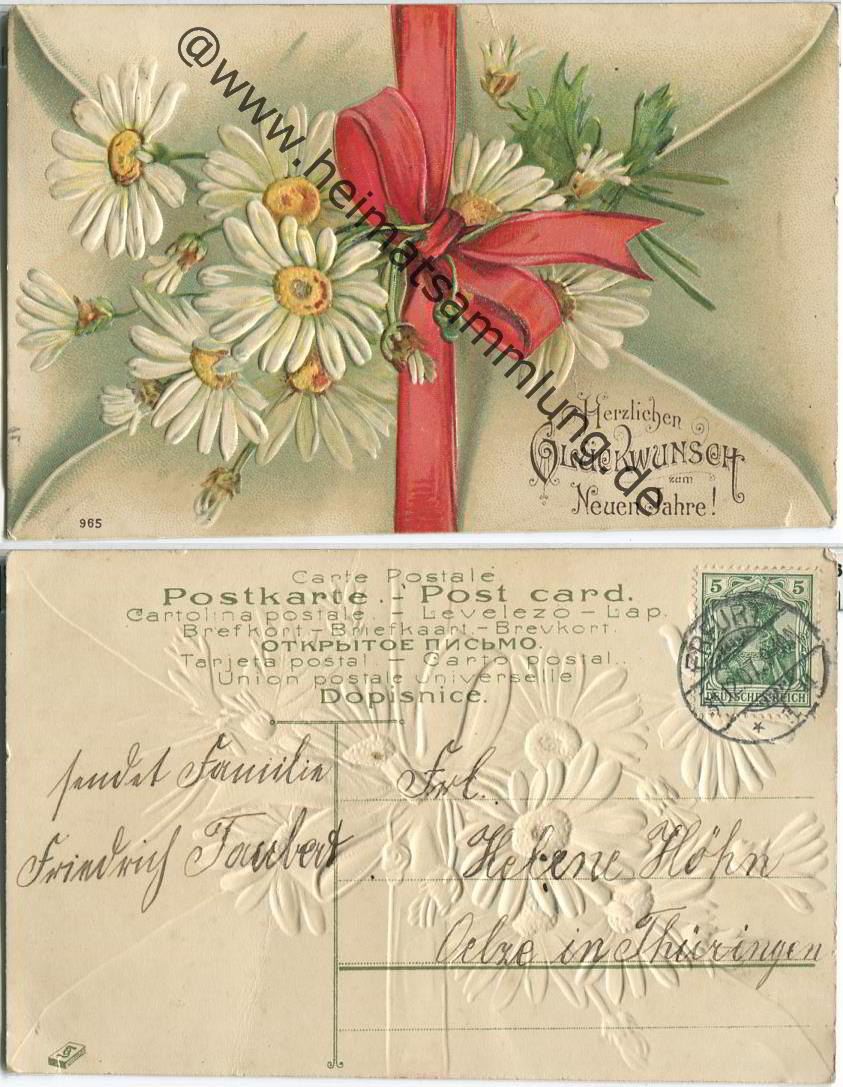 @www.heimatsammlung.de
Herzlichen
GLÜCKWUNSCH
zum
Neuen Jahre!
965
Carte Postale
Postkarte. - Post card.
Cartolina postale. - Levelezo - Lap.
Brefkort - Briefkaart - Brevkort.
ОТКРЫТОЕ ПИСЬМО.
Tarjeta postal. - Carto postal.
Union postale universelle
Dopisnice.
5 5
DEUTSCHES REICH
ERFURT
sendet Familie
Friedrich Taubert.
Frl.
Helene Höhn
Oelze in Thüringen